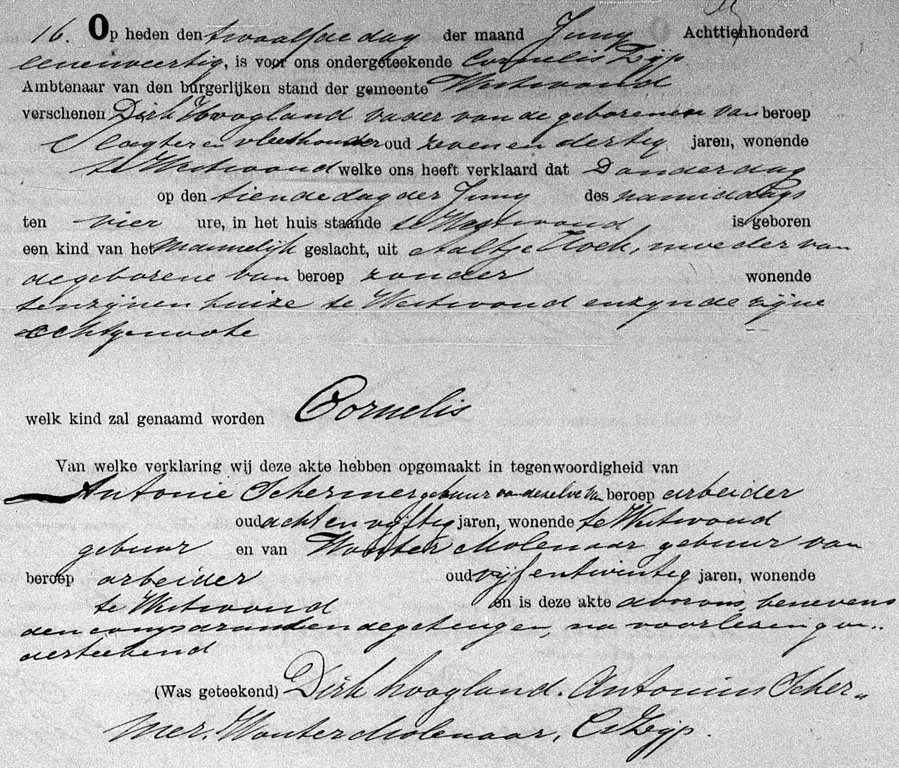 16. Op heden den twaalfde dag der maand Juny Achttienhonderd
eenenveertig, is voor ons ondergeteekende Cornelis Zijp
Ambtenaar van den burgerlijken stand der gemeente Westwoud
verschenen Dirk Hoogland vader van de geborene van beroep
Slagter en vleeschhouder oud zeven en dertig jaren, wonende
te Westwoud welke ons heeft verklaard dat Donderdag
op den tiende dag der Juny des namiddags
ten vier ure, in het huis staande te Westwoud is geboren
een kind van het Mannelijk geslacht, uit Aaltje Kock, moeder van
de geborene van beroep zonder wonende
tenzijnen huize te Westwoud en zynde zijne
echtgenoote
welk kind zal genaamd worden Cornelis
Van welke verklaring wij deze akte hebben opgemaakt in tegenwoordigheid van
Antonie Schermer gebuur van dezelve van beroep arbeider
oud acht en vyftig jaren, wonende te Westwoud
gebuur en van Wouter Molenaar gebuur van
beroep arbeider oud vijf en twintig jaren, wonende
te Westwoud en is deze akte door ons, benevens
den comparant en de getuigen, na voorlezing on..
derteekend
(Was geteekend) Dirk Hoogland. Antonius Scher„
mer. Wouter Molenaar, C Zijp.